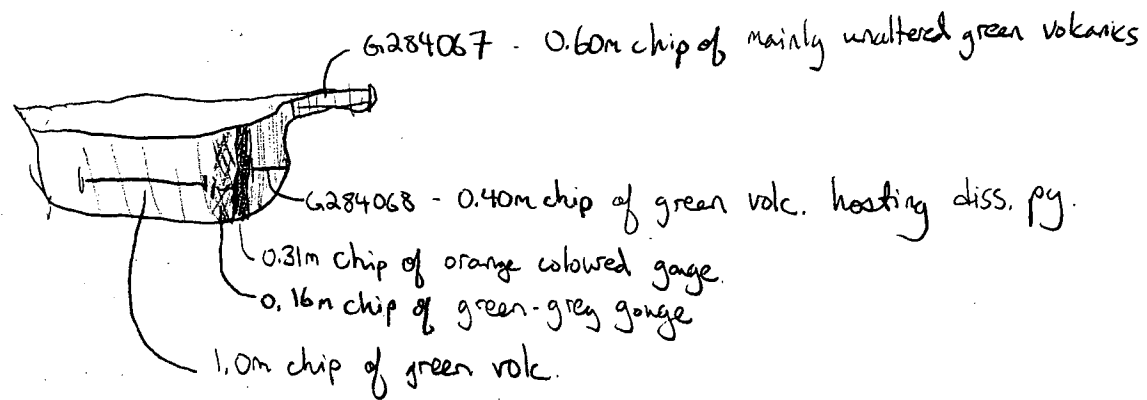 G284067 - 0.60m chip of mainly unaltered green volcanics
G284068 - 0.40m chip of green volc. hosting diss. py.
0.31m chip of orange coloured gouge.
0.16m chip of green-grey gouge
1.0m chip of green volc.